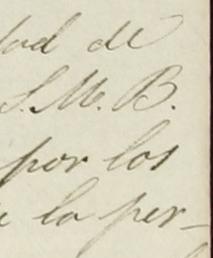 dad de
S. M. B.
por los
la per-